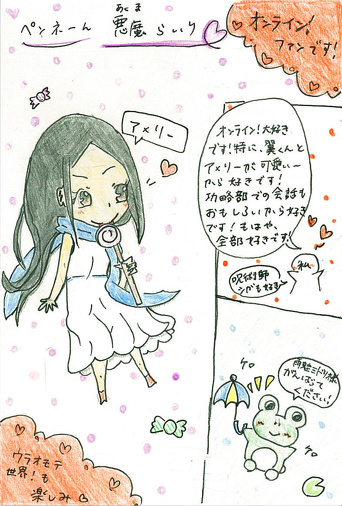 ペンネーム 悪魔らいり
あくま
オンライン!
ファンです!
アメリー
オンライン!大好き
です!特に、翼くんと
アメリーが可愛いー
から好きです!
攻略部での会話も
おもしろいから好き
です!もはや、
全部好きです!
私
呪術師
シガも好き
雨蛙ミドリ様
がんばって
ください!
ケロ
ケロ
ウラオモテ
世界!も
楽しみ